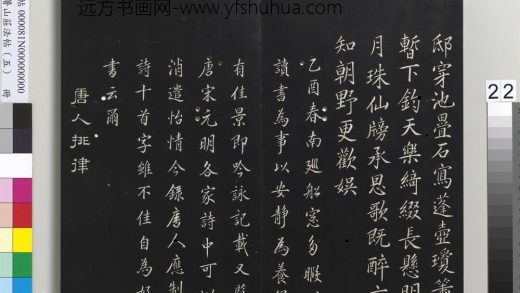 远方书画网-www.yfshuhua.com
邸穿池疊石寫蓬壺瓊簫
暫下鈞天樂綺綴長懸明
月珠仙牓承恩歌既醉方
知朝野更歡娱
乙酉春南廵船窓多暇
讀書為事以安靜為養
有佳景即吟詠記載又
唐宋元明各家詩中可以
消遣怡情今錄唐人應制
詩十首字雖不佳自為好
書云爾
唐人排律
22
帖 000081N000000000
山莊法帖(五) 冊